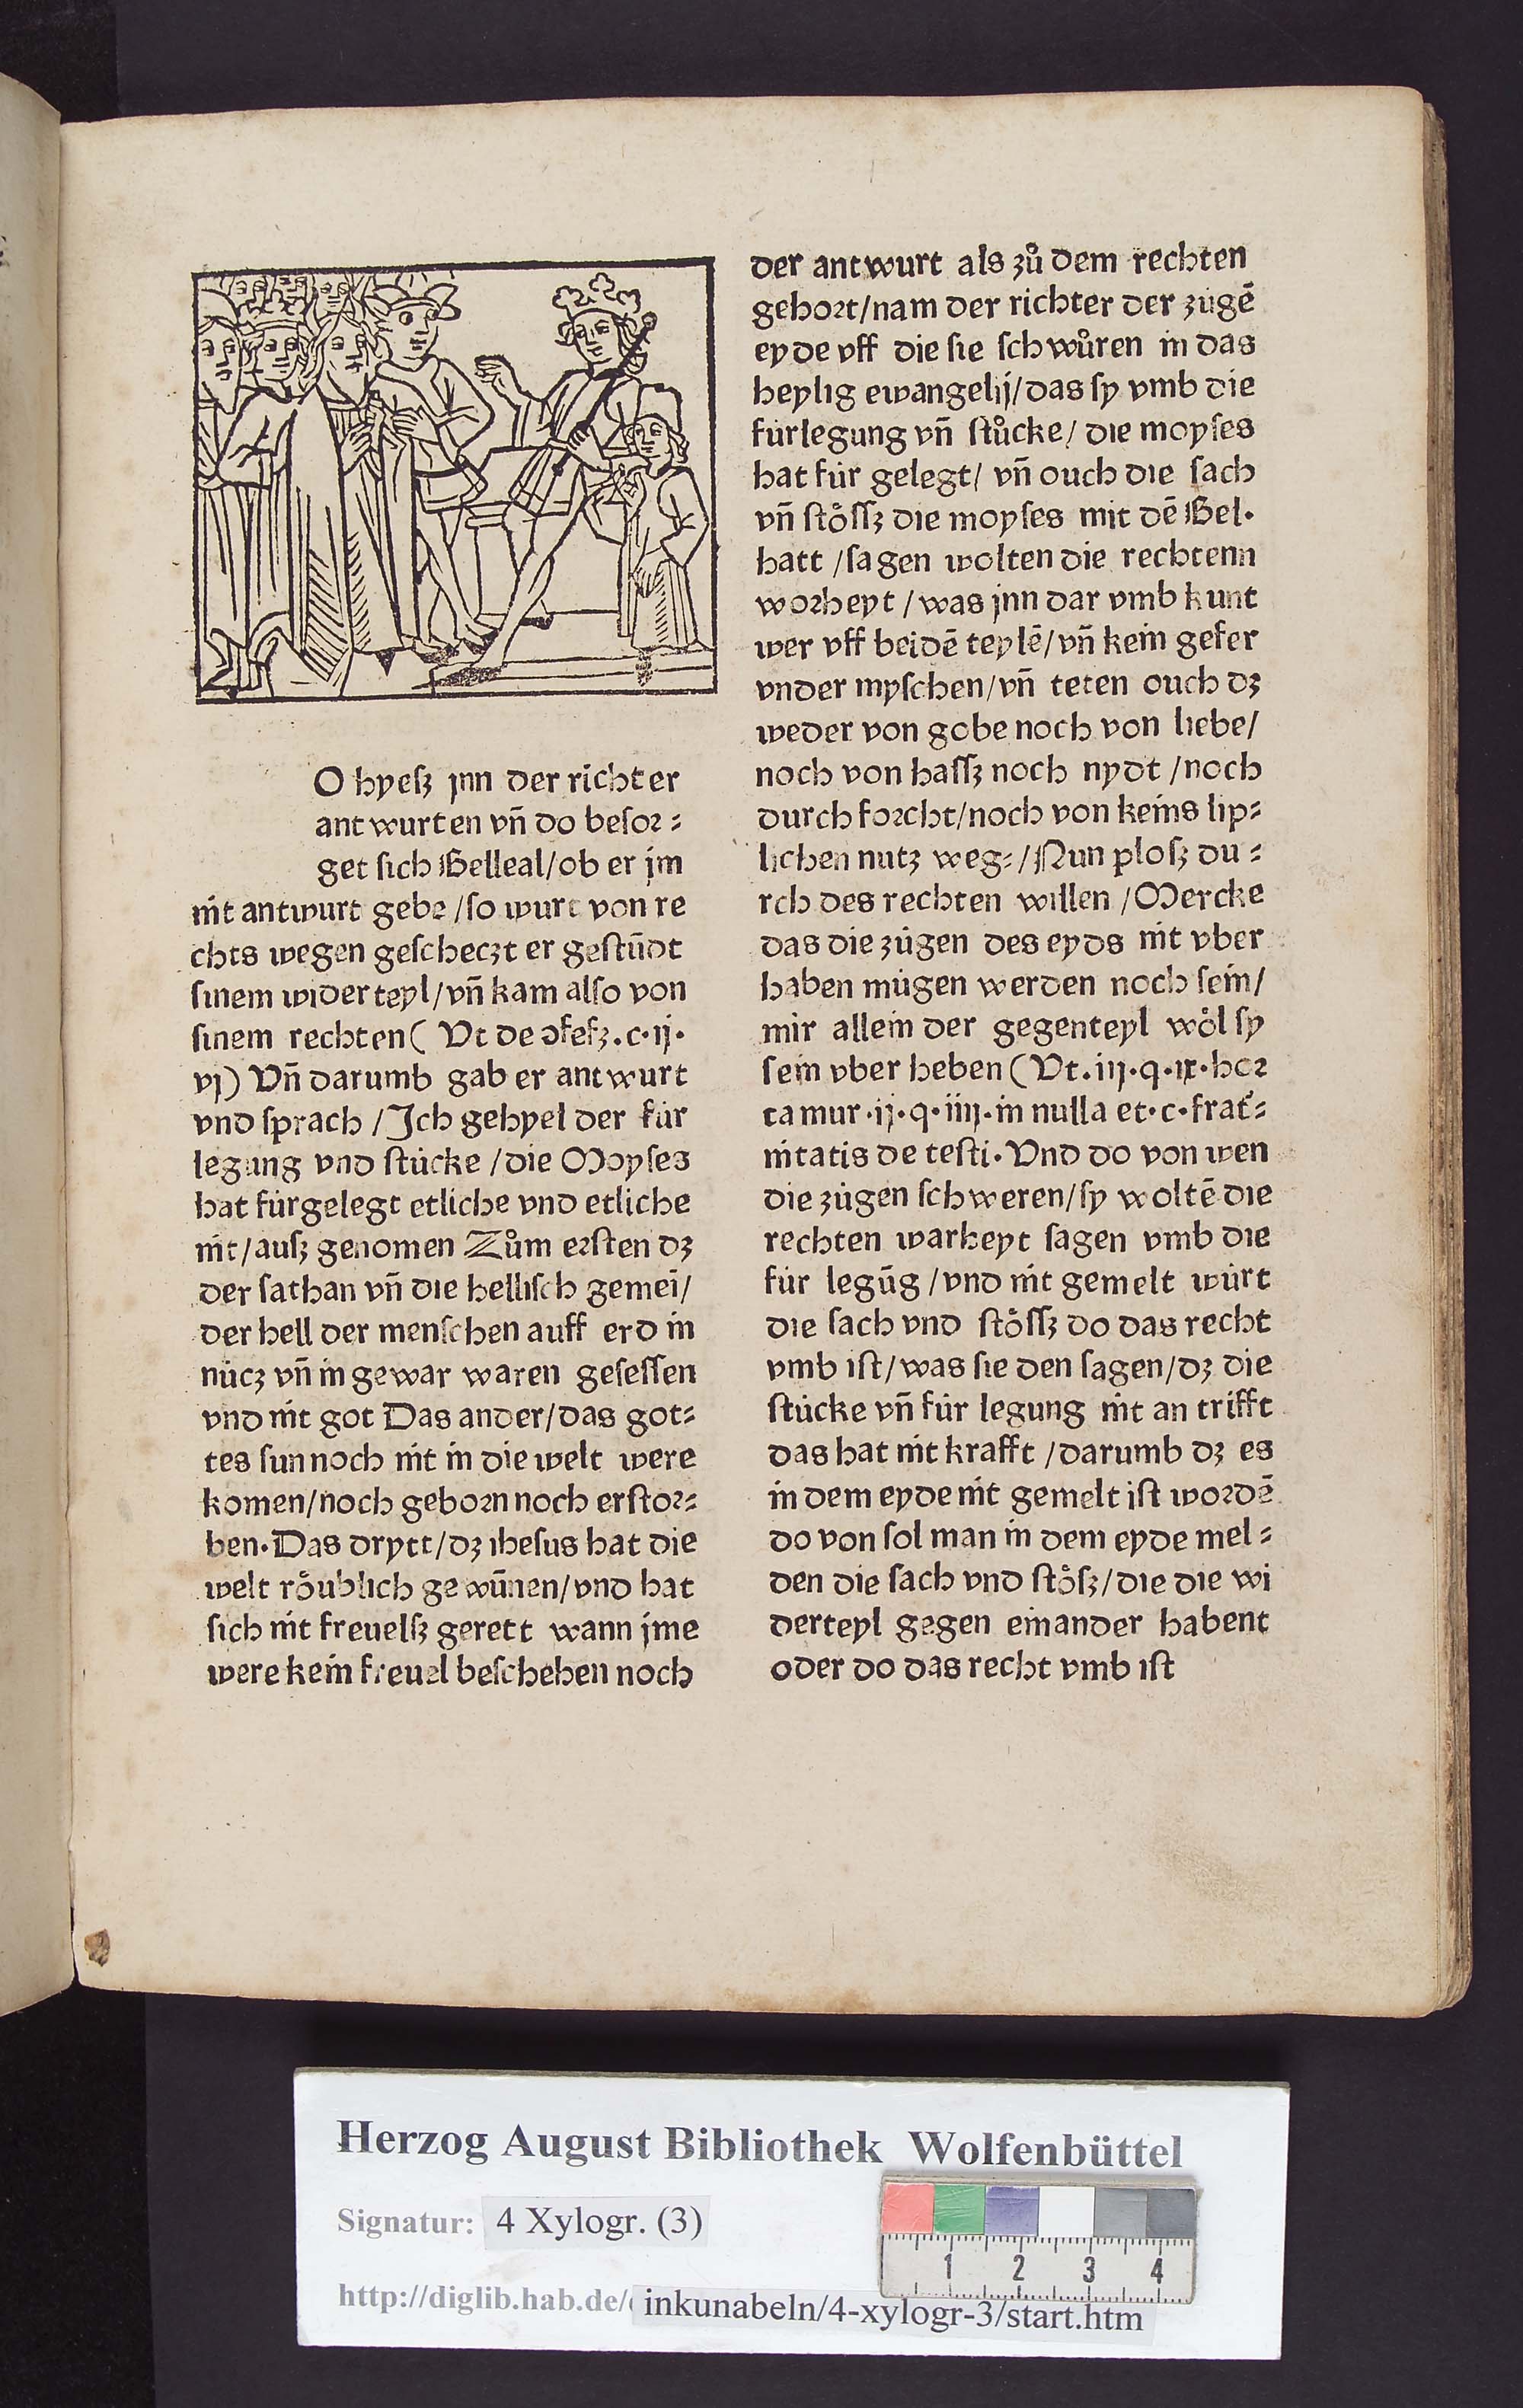 O hyeſz jnn der richter
antwurten vn̄ do beſor⸗
get ſich Belleal/ob er jm
nit antwurt gebe /ſo wurt von re
chts wegen geſcheczt er geſtūdt
ſinem widerteyl/vn̄ kam alſo von
ſinem rechten( Vt de ɔfeſz.c.ij.
vj) Vn̄ darumb gab er antwurt
vnd ſprach /Ich gehyel der für
legung vnd ſtücke /die Moyſes
hat fürgelegt etliche vnd etliche
nit/auſz genomen Zům erſten dz
der ſathan vn̄ die helliſch gemeī/
der hell der menſchen auff erd in
nücz vn̄ in gewar waren geſeſſen
vnd nit got Das ander/das got⸗
tes ſun noch nit in die welt were
komen/noch geborn noch erſtor⸗
ben.Das drytt/dz iheſus hat die
welt röublich gewūnen/vnd hat
ſich nit freuelſz gerett wann jme
were kein freuel beſchehen noch
der antwurt als zů dem rechten
gehort/nam der richter der zügē
eyde vff die ſie ſchwůren in das
heylig ewangelij/das ſy vmb die
fürlegung vn̄ ſtůcke/ die moyſes
hat für gelegt/ vn̄ ouch die ſach
vn̄ ſtöſſz die moyſes mit dē Bel.
hatt /ſagen wolten die rechtenn
worheyt /was jnn dar vmb kunt
wer vff beidē teylē/vn̄ kein gefer
vnder myſchen/vn̄ teten ouch dz
weder von gobe noch von liebe/
noch von haſſz noch nydt /noch
durch forcht/noch von keins lip⸗
lichen nutz weg⸗/Nun ploſz du⸗
rch des rechten willen /Mercke
das die zügen des eyds nit vber
haben mügen werden noch ſein/
mir allein der gegenteyl wöl ſy
ſein vber heben (Vt.iij.q.ix.hor
tamur.ij.q.iiij.in nulla et.c.frat⸗
nitatis de teſti.Vnd do von wen
die zügen ſchweren/ſy woltē die
rechten warheyt ſagen vmb die
für legūg /vnd nit gemelt würt
die ſach vnd ſtöſſz do das recht
vmb iſt/was ſie den ſagen/dz die
ſtücke vn̄ für legung nit an trifft
das hat nit krafft /darumb dz es
in dem eyde nit gemelt iſt wordē
do von ſol man in dem eyde mel⸗
den die ſach vnd ſtöſz/die die wi
derteyl gegen einander habent
oder do das recht vmb iſt
Herzog August Bibliothek Wolfenbüttel
Signatur: 4 Xylogr. (3)
http://diglib.hab.de/ inkunabeln/4-xylogr-3/start.htm
1 2 3 4